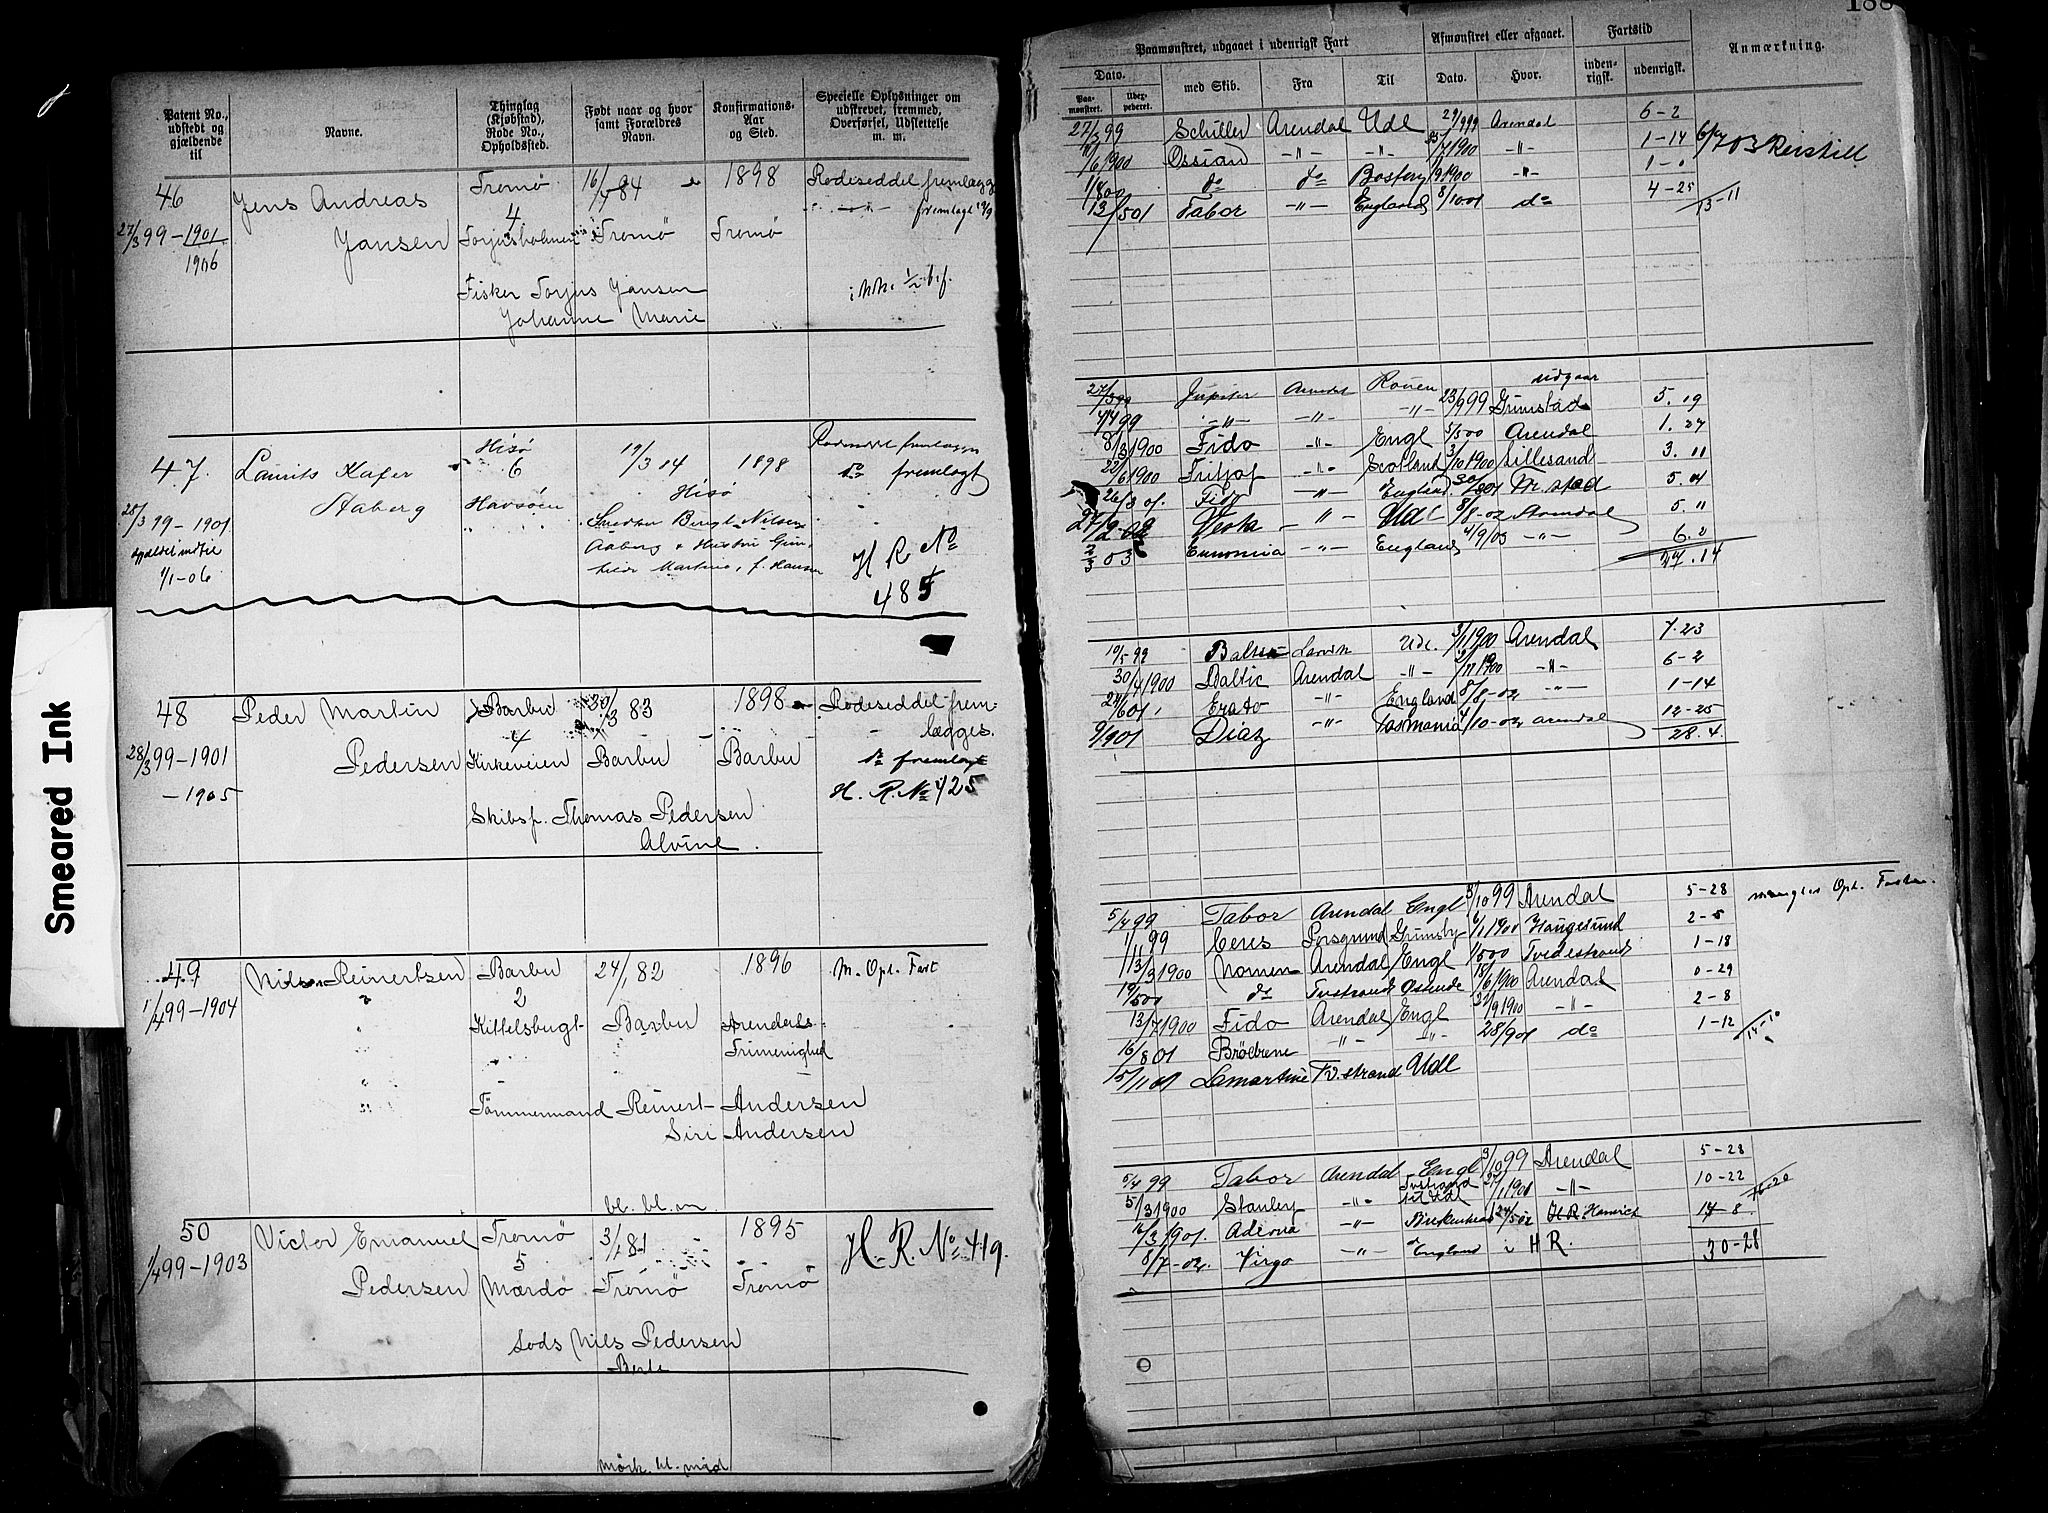 188
Smeared Ink
Patent No., udstedt og gjældende til
Navne.
Thinglag (Kjøbstad), Rode No., Opholdssted.
Født naar og hvor samt Forældres Navn.
Konfirmations-Aar og Sted.
Specielle Oplysninger om udskrevet, fremmed, Overførsel, Udslettelse m. m.
46 Jens Andreas Tromø 16/7 84 1898 Rodeseddel fremlægges
4 fremlagt
27/3 99-1901 Jansen Torjusholmen Tromø Tromø
1906
Fisker Torjus Jansen
Johanne Marie
47. Laurits Kafer Hisø 19/3 1898
6 do fremlagt
Aaberg Havsøen Hisø
28/3 99-1901
gjældel indtil
1/1-06
Smedm Bengt Nilsen
Aaberg & Hustru
H R No
485
48 Peder Martin Barbu 30/3 83 1898 Rodeseddel frem-
4 lægges.
28/3 99-1901 Pedersen Kirkeveien Barbu Barbu do fremlagt
-1905 H. R. No 425
Skibsf. Thomas Pedersen
Alvine.
49 Nils Reinertsen Barbu 24/1 82 1896 M. Opl. Fart
2
1/4 99-1904 Kittelsbugt Barbu Arendals
Trimenighed
Tømmermand Reinert Andersen
Siri Andersen
bl. bl. m
50 Victor Emanuel Tromø 3/1 81 1895 H. R. No 419.
5
1/4 99-1903 Pedersen Mærdø Tromø Tromø
Lods Nils Pedersen
Berte
Mörk. bl. mid
Paamønstret, udgaaet i udenrigsk Fart
Afmønstret eller afgaaet.
Fartstid
Anmærkning.
Dato. med Skib. Fra Til Dato. Hvor. inden-rigsk. udenrigsk.
Paa-mønstret. Udex-pederet.
27/3 99 Schiller Arendal Udl 29/9 99 Arendal 6-2
/6 1900 Ossian -"- -"- /7 1900 -"- 1-14
1/8 00 do do 9 1900 -"-
13/5 01 Tabor -"- England 8/10 01 do 4-25
13-11
27/3 99 Jupiter Arendal Rouen udgaar
4/4 99 -"- -"- -"- 23/9 99 Grimstad 5. 19
8/3 1900 Fido -"- Engl 5/5 00 Arendal 1. 27
22/6 1900 Fritjof -"- Scotland 3/10 1900 Lillesand 3. 11
26/3 01. Fido -"- England 30/8 01 M. stad 5. 04
27/2-02 -"- Udl 8/8-02 Arendal 5. 11
2/3 03 Eunomia -"- England 4/9/03 -"- 6. 2
27. 14
10/5 99 Baltic Larvik Udl. 3/1 1900 Arendal 7-23
30/4 1900 Baltic Arendal -"- 1900 -"- 6-2
24/6 01 Erato -"- England 8/8-02 -"- 1-14
9/9 01 Diaz -"- Tasmania 4/10-02 Arendal 12-25
28. 4.
5/4 99 Tabor Arendal Engl 3/10 99 Arendal 5-28 mangler Opl. Fart
1/11 99 Ceres Porsgrund Grimsby 6/1 1900 Haugesund 2-5
13/3 1900 Nornen Arendal Engl 1/5 00 Tvedestrand 1-18
19/5 00 do Tvstrand Ostende 18/6 1900 Arendal 0-29
13/7 1900 Fido Arendal Engl 21/9 1900 -"- 2-8
16/8 01 Brödrene -"- -"- 28/9 01 do 1-12
14-10
15/11 01 Lamartine Tv. strand Udl
5/4 99 Tabor Arendal Engl 3/10 99 Arendal 5-28
5/3 1900 Stanley -"- Tvstrand til Udl 27/1 1901 -"- 10-22
16-20
16/3 1901. -"- Birkenhead 24/5 02 H.R. 14-8
8/7-02. Virgo -"- England i H R. 30-28